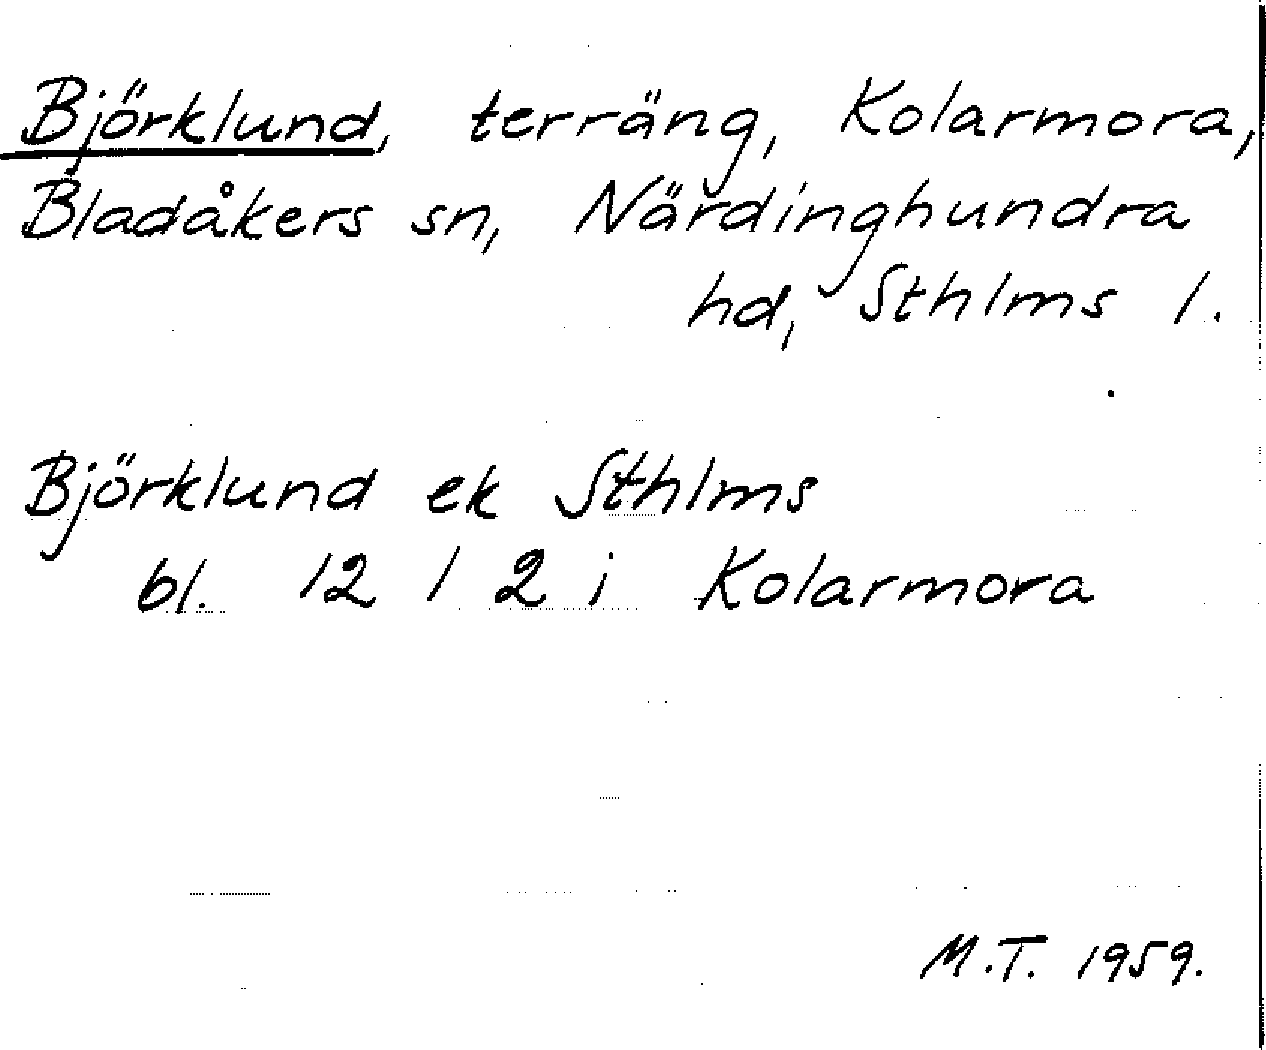 Björklund, terräng, Kolarmora,
Bladåkers sn, Närdinghundra
hd, Sthlms l.
Björklund ek Sthlms
bl. 12 l 2 i Kolarmora
M.T. 1959.